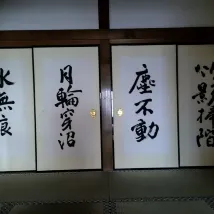 竹影掃階
塵不動
月輪穿沼
水無痕